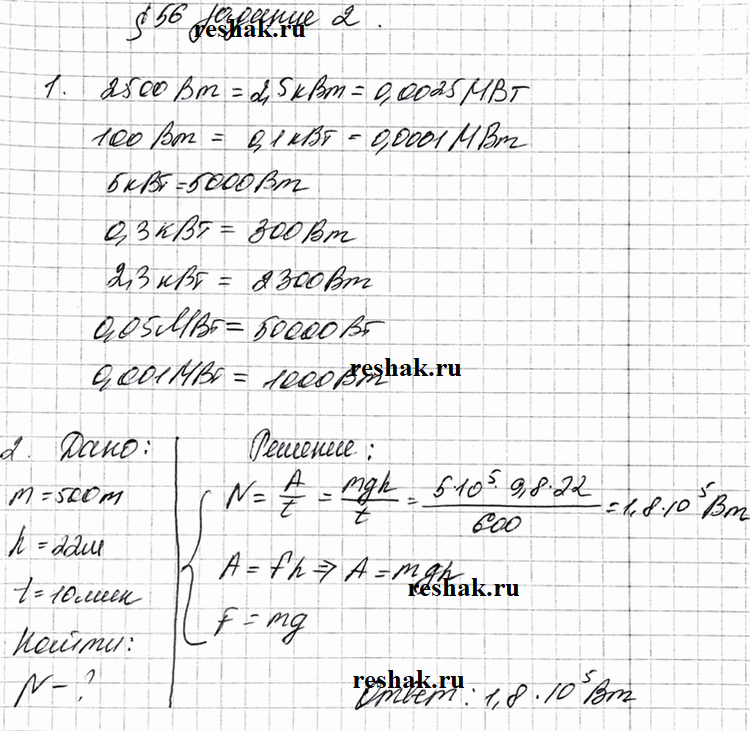 §56 Задание 2.
reshak.ru
1. 2500 Вт = 2,5 кВт = 0,0025 МВт
100 Вт = 0,1 кВт = 0,0001 МВт
5 кВт = 5000 Вт
0,3 кВт = 300 Вт
2,3 кВт = 2300 Вт
0,05 МВт = 50000 Вт
reshak.ru
0,001 МВт = 1000 Вт
2. Дано: Решение:
m = 500т
h = 22м
t = 10мин
Найти:
N - ?
N = A/t = mgh/t = 5·10⁵·9,8·22/600 = 1,8·10⁵ Вт
A = Fh ⇒ A = mgh
reshak.ru
F = mg
reshak.ru
Ответ: 1,8·10⁵ Вт